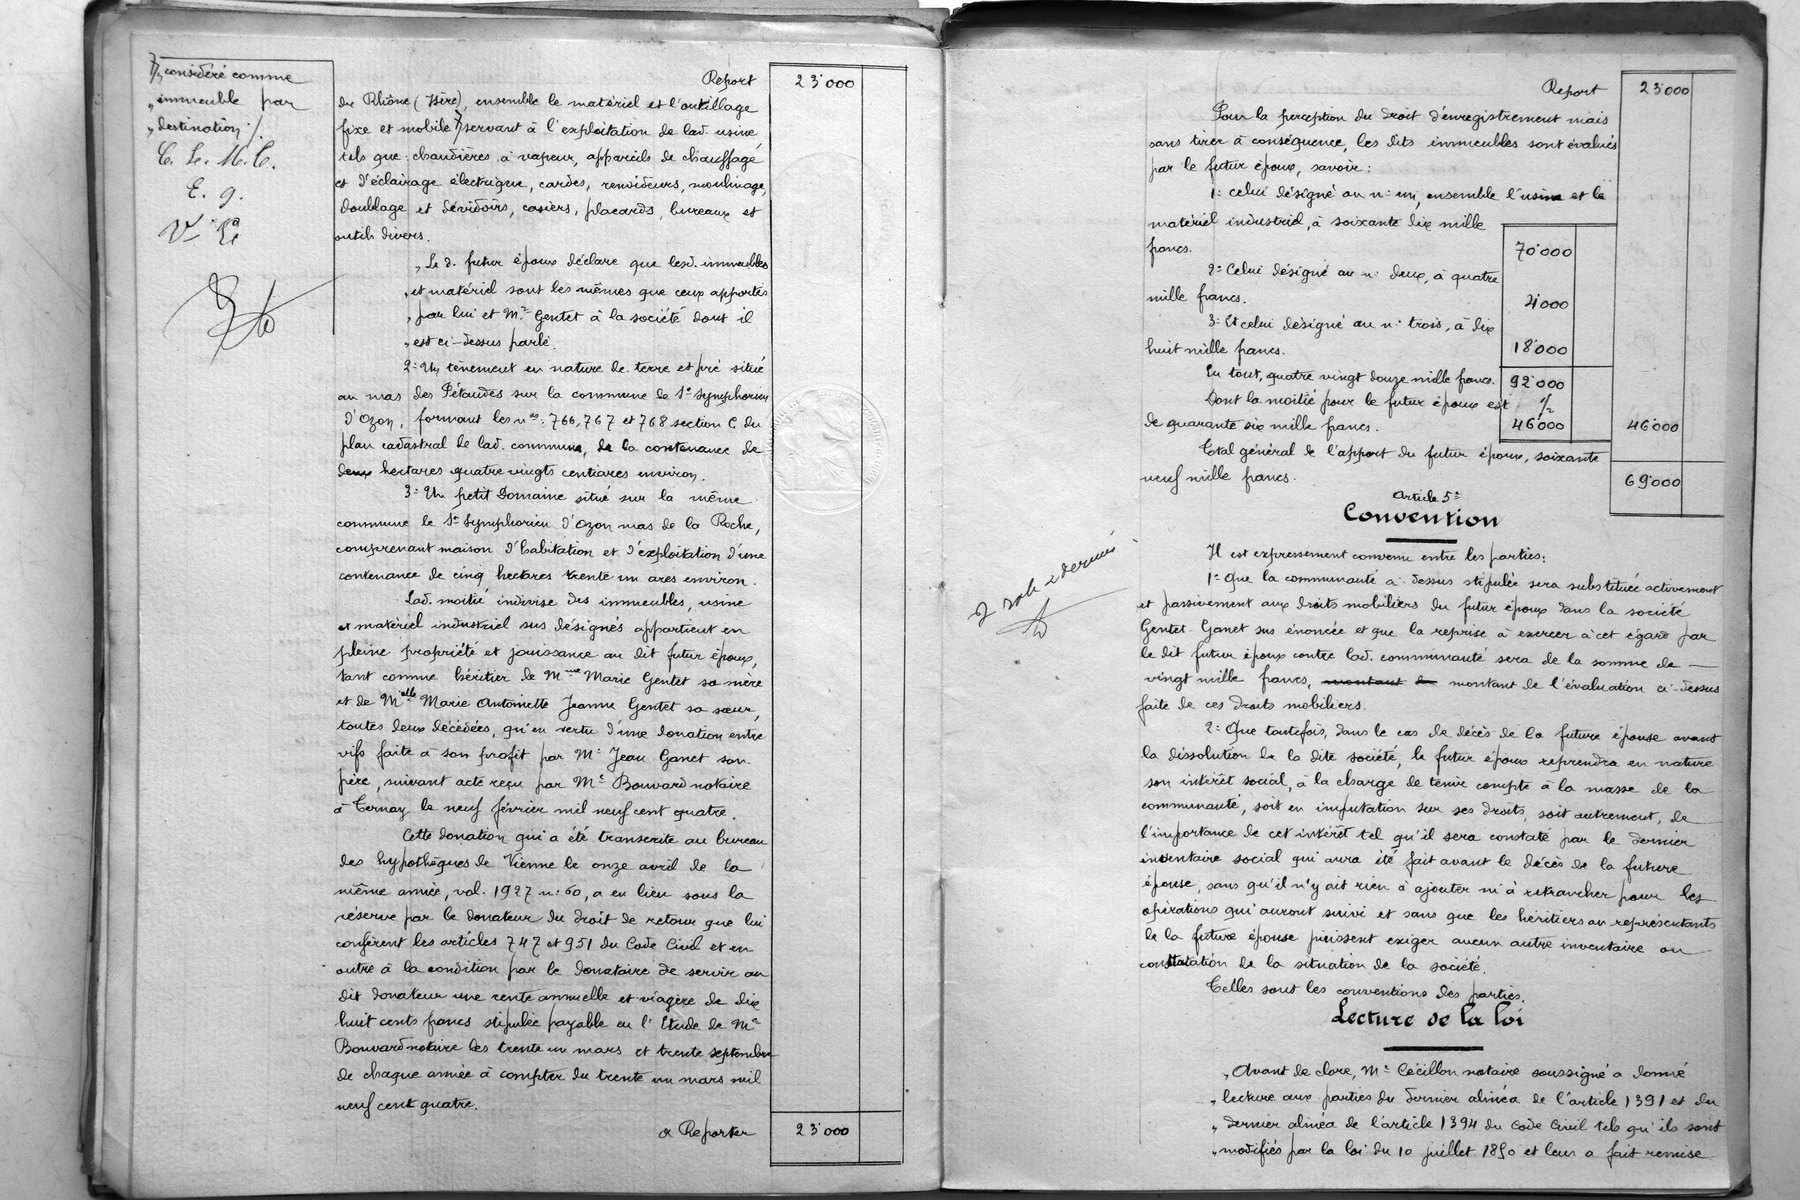 considéré comme
„ immeuble par
„ destination /.
C. L. M. C.
E. g.
Report 23.000
du Rhône (Isère), ensemble le matériel et l'outillage
fixe et mobile servant à l'exploitation de lad. usine
tels que: chaudières à vapeur, appareils de chauffage
et d'éclairage électrique, cardes, renvideurs, moulinage,
doublage et dévidoirs, casiers, placards, bureaux et
outils divers.
„ Le d. futur époux déclare que lesd. immeubles
„ et matériel sont les mêmes que ceux apportés
„ par lui et Mr Gentet à la société dont il
„ est ci-dessus parlé.
2º Un tènement en nature de terre et pré situé
au mas des Pétaudes sur la commune de St Symphorien
d'Ozon, formant les nos. 766, 767 et 768 section C du
plan cadastral de lad. commune, de la contenance de
deux hectares quatre vingts centiares environ.
3º Un petit Domaine situé sur la même
commune de St Symphorien d'Ozon mas de la Roche,
comprenant maison d'habitation et d'exploitation d'une
contenance de cinq hectares trente un ares environ.
Lad. moitié indivise des immeubles, usine
et matériel industriel sus désignés appartient en
pleine propriété et jouissance au dit futur époux,
tant comme héritier de Mme Marie Gentet sa mère
et de Melle Marie Antoinette Jeanne Gentet sa sœur,
toutes deux décédées, qu'en vertu d'une donation entre
vifs faite à son profit par Mr Jean Ganet son
père, suivant acte reçu par Me Bouvard notaire
à Ternay le neuf février mil neuf cent quatre.
Cette donation qui a été transcrite au bureau
des hypothèques de Vienne le onze avril de la
même année, vol. 1927 nº 60, a eu lieu sous la
réserve par le donateur du droit de retour que lui
confèrent les articles 747 et 951 du Code Civil et en
outre à la condition par le donataire de servir au
dit donateur une rente annuelle et viagère de dix
huit cents francs stipulée payable en l'Etude de Me
Bouvard notaire les trente un mars et trente septembre
de chaque année à compter du trente un mars mil
neuf cent quatre.
a Reporter 23.000
Report 23.000
Pour la perception du droit d'enregistrement mais
sans tirer à conséquence, les dits immeubles sont évalués
par le futur époux, savoir:
1º celui désigné au nº un, ensemble l'usine et le
matériel industriel, à soixante dix mille
francs. 70.000
2º Celui désigné au nº deux, à quatre
mille francs. 4.000
3º Et celui désigné au nº trois, à dix
huit mille francs. 18.000
En tout, quatre vingt douze mille francs. 92.000
Dont la moitié pour le futur époux est 1/2
de quarante six mille francs. 46.000 46.000
Total général de l'apport du futur époux, soixante
neuf mille francs. 69.000
Article 5º
Convention
Il est expressement convenu entre les parties:
1º Que la communauté ci-dessus stipulée sera substituée activement
et passivement aux droits mobiliers du futur époux dans la société
Gentet-Ganet sus énoncée et que la reprise à exercer à cet égard par
le dit futur époux contre lad. communauté sera de la somme de —
vingt mille francs, montant de montant de l'évaluation ci-dessus
faite de ces droits mobiliers.
2º Que toutefois, dans le cas de décès de la future épouse avant
la dissolution de la dite société, le futur époux reprendra en nature
son intérêt social, à la charge de tenir compte à la masse de la
communauté, soit en imputation sur ses droits, soit autrement, de
l'importance de cet intérêt tel qu'il sera constaté par le dernier
inventaire social qui aura été fait avant le décès de la future
épouse, sans qu'il n'y ait rien à ajouter ni à retrancher pour les
opérations qui auront suivi et sans que les héritiers ou représentants
de la future épouse puissent exiger aucun autre inventaire ou
constatation de la situation de la société.
Telles sont les conventions des parties.
Lecture de la loi
„ Avant de clore, Me Cécillon notaire soussigné a donné
„ lecture aux parties du dernier alinéa de l'article 1391 et du
„ dernier alinéa de l'article 1394 du Code Civil tels qu'ils sont
„ modifiés par la loi du 10 juillet 1850 et leur a fait remise